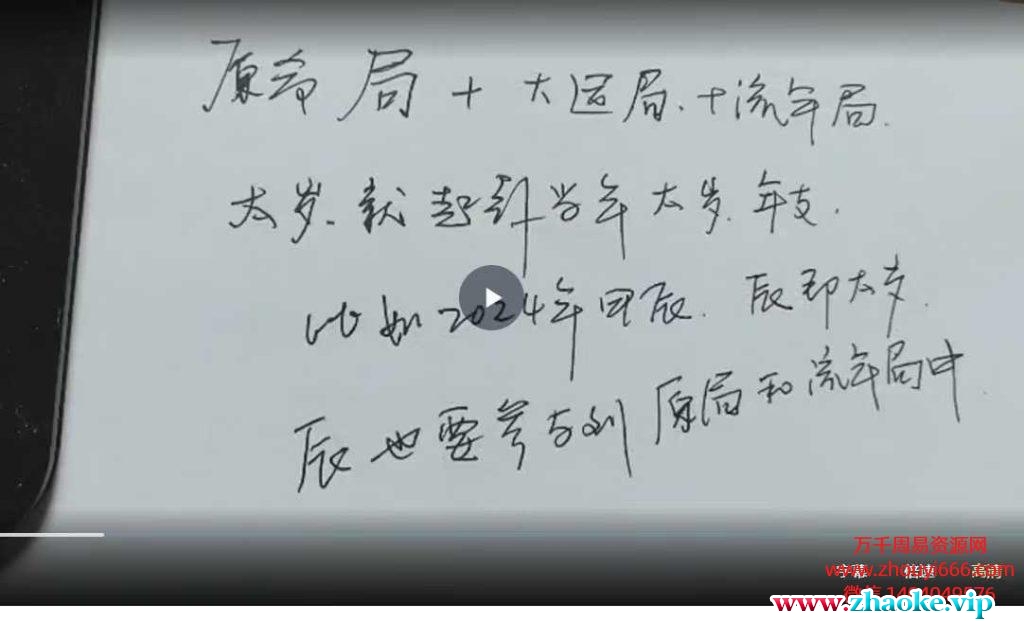 原命局+大运局.+流年局.
太岁.就起到当年太岁.年支.
比如2024年甲辰.辰即太岁.
辰也要参与到原局和流年局中.
万千周易资源网
字幕 倍速 高清
www.zhaoke.vip